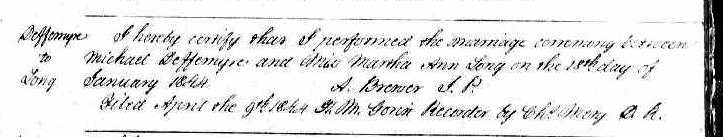 Deffemyre
to
Long
I hereby certify that I performed the marriage cermony between
Michael Deffemyre and Miss Martha Ann Long on the 18th day of
January 1844 A. Brewer J. P.
Filed April the 9th 1844 H. M. Gorin Recorder by Chs Mety D. R.